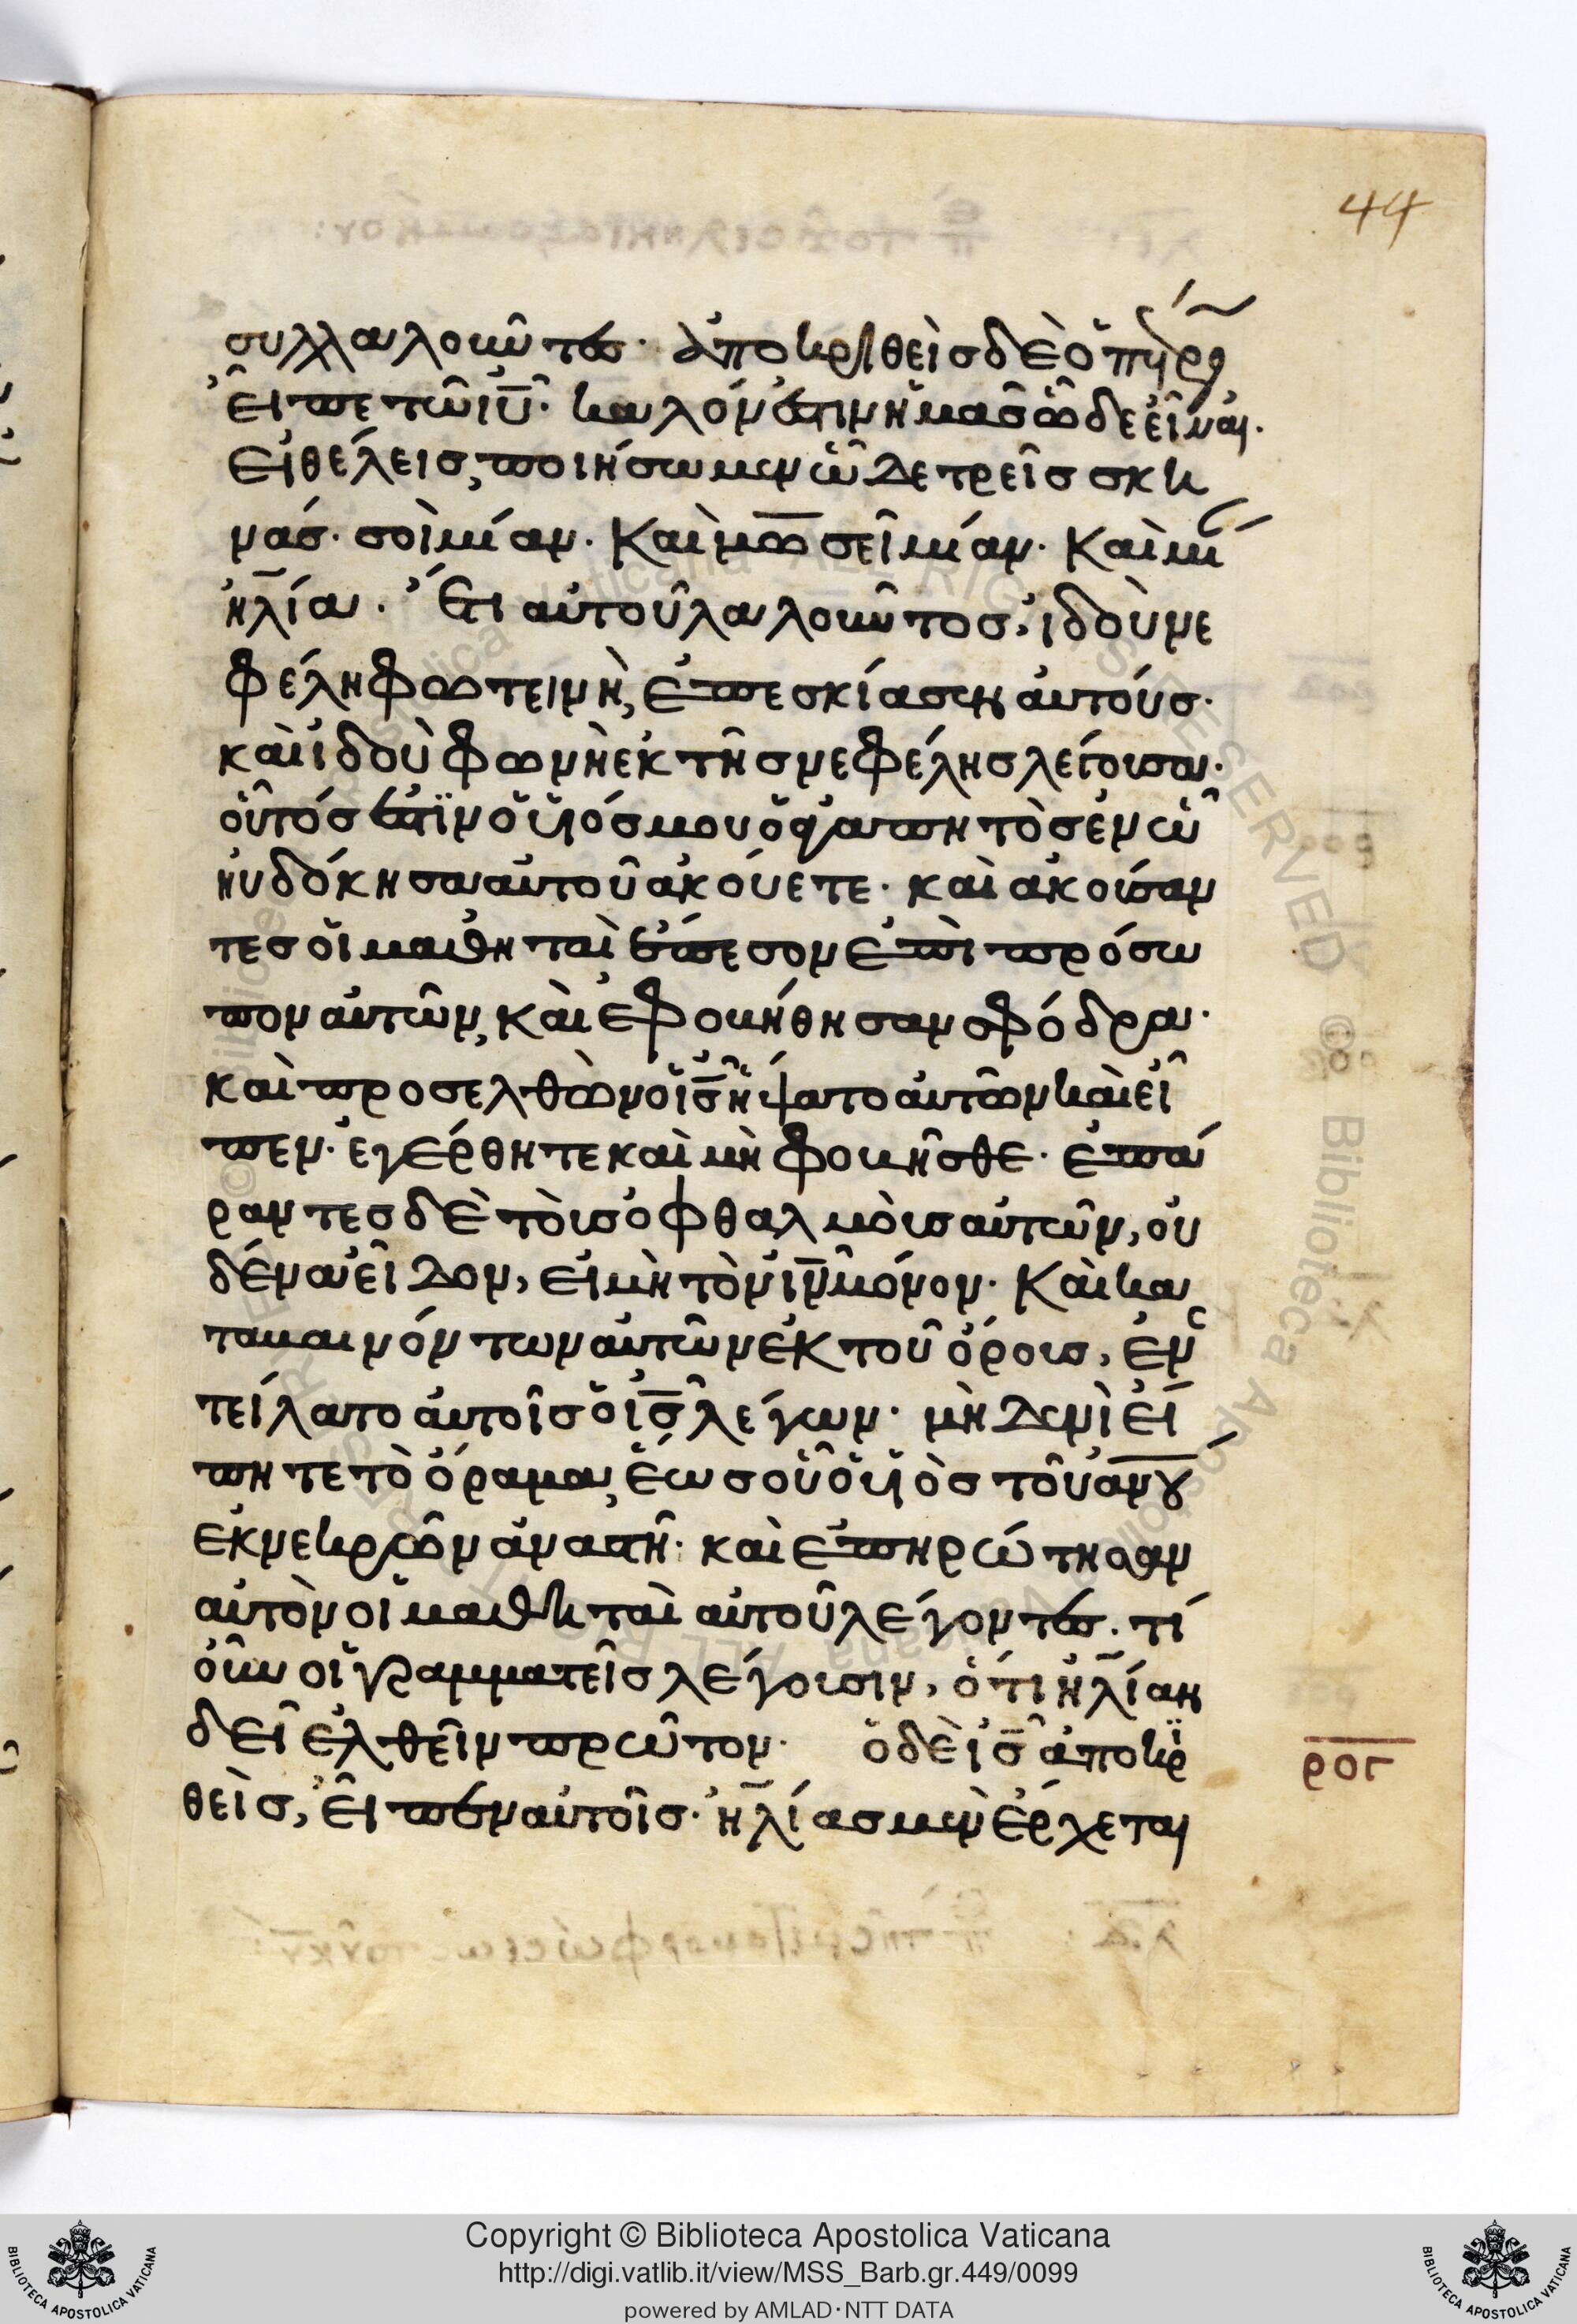 44
συλλαλοῦντες· ἀποκριθεὶς δὲ ὁ πέτρος
εἶπε τῶ ιυ̅· καλόν ἐστιν ἡμᾶς ὧδε εἶναι·
εἰ θέλεις, ποιήσωμεν ὧδε τρεῖς σκη
νάς· σοὶ μίαν· καὶ μωσεῖ μίαν· καὶ μίαν
ἠλία· Ἔτι αὐτοῦ λαλοῦντος, ἰδοὺ νε
φέλη φωτεινὴ, ἐπεσκίασεν αὐτούς·
καὶ ἰδοὺ φωνὴ ἐκ τῆς νεφέλης λέγουσα·
οὗτός ἐστϊν ὁ υἱός μου ὁ ἀγαπητὸς ἐν ὧ
ηὐδόκησα αὐτοῦ ἀκούετε· καὶ ἀκούσαν
τες οἱ μαθηταὶ ἔπεσον ἐπὶ πρόσω
πον αὐτῶν, καὶ ἐφοβήθησαν σφόδρα·
καὶ προσελθὼν ὁ ις̅ ἥψατο αὐτῶν καὶ εἶ
πεν· ἐγέρθητε καὶ μὴ φοβῆσθε· ἐπά
ραντες δὲ τοὺς ὀφθαλμοὺς αὐτῶν, οὐ
δένα εἶδον, εἰ μὴ τὸν ιν̅ μόνον· Καὶ κα
ταβαινόντων αὐτῶν ἐκ τοῦ ὄρους, ἐν
τείλατο αὐτοῖς ὁ ις̅ λέγων· μὴδενὶ εἴ
πητε τὸ ὅραμα, ἕως οὗ ὁ υἱὸς τοῦ ανου̅
ἐκ νεκρῶν ἀναστῆ· καὶ ἐπηρώτησαν
αὐτὸν οἱ μαθηταὶ αὐτοῦ λέγοντες· τί
οὖν οἱ γραμματεῖς λέγουσιν, ὅτι ἠλίαν
δεῖ ἐλθεῖν πρῶτον· ὁ δὲ ις̅ ἀποκρι
ροε
θεὶς, εἶπεν αὐτοῖς· ἠλίας μὲν ἔρχεται
Copyright © Biblioteca Apostolica Vaticana
http://digi.vatlib.it/view/MSS_Barb.gr.449/0099
powered by AMLAD·NTT DATA